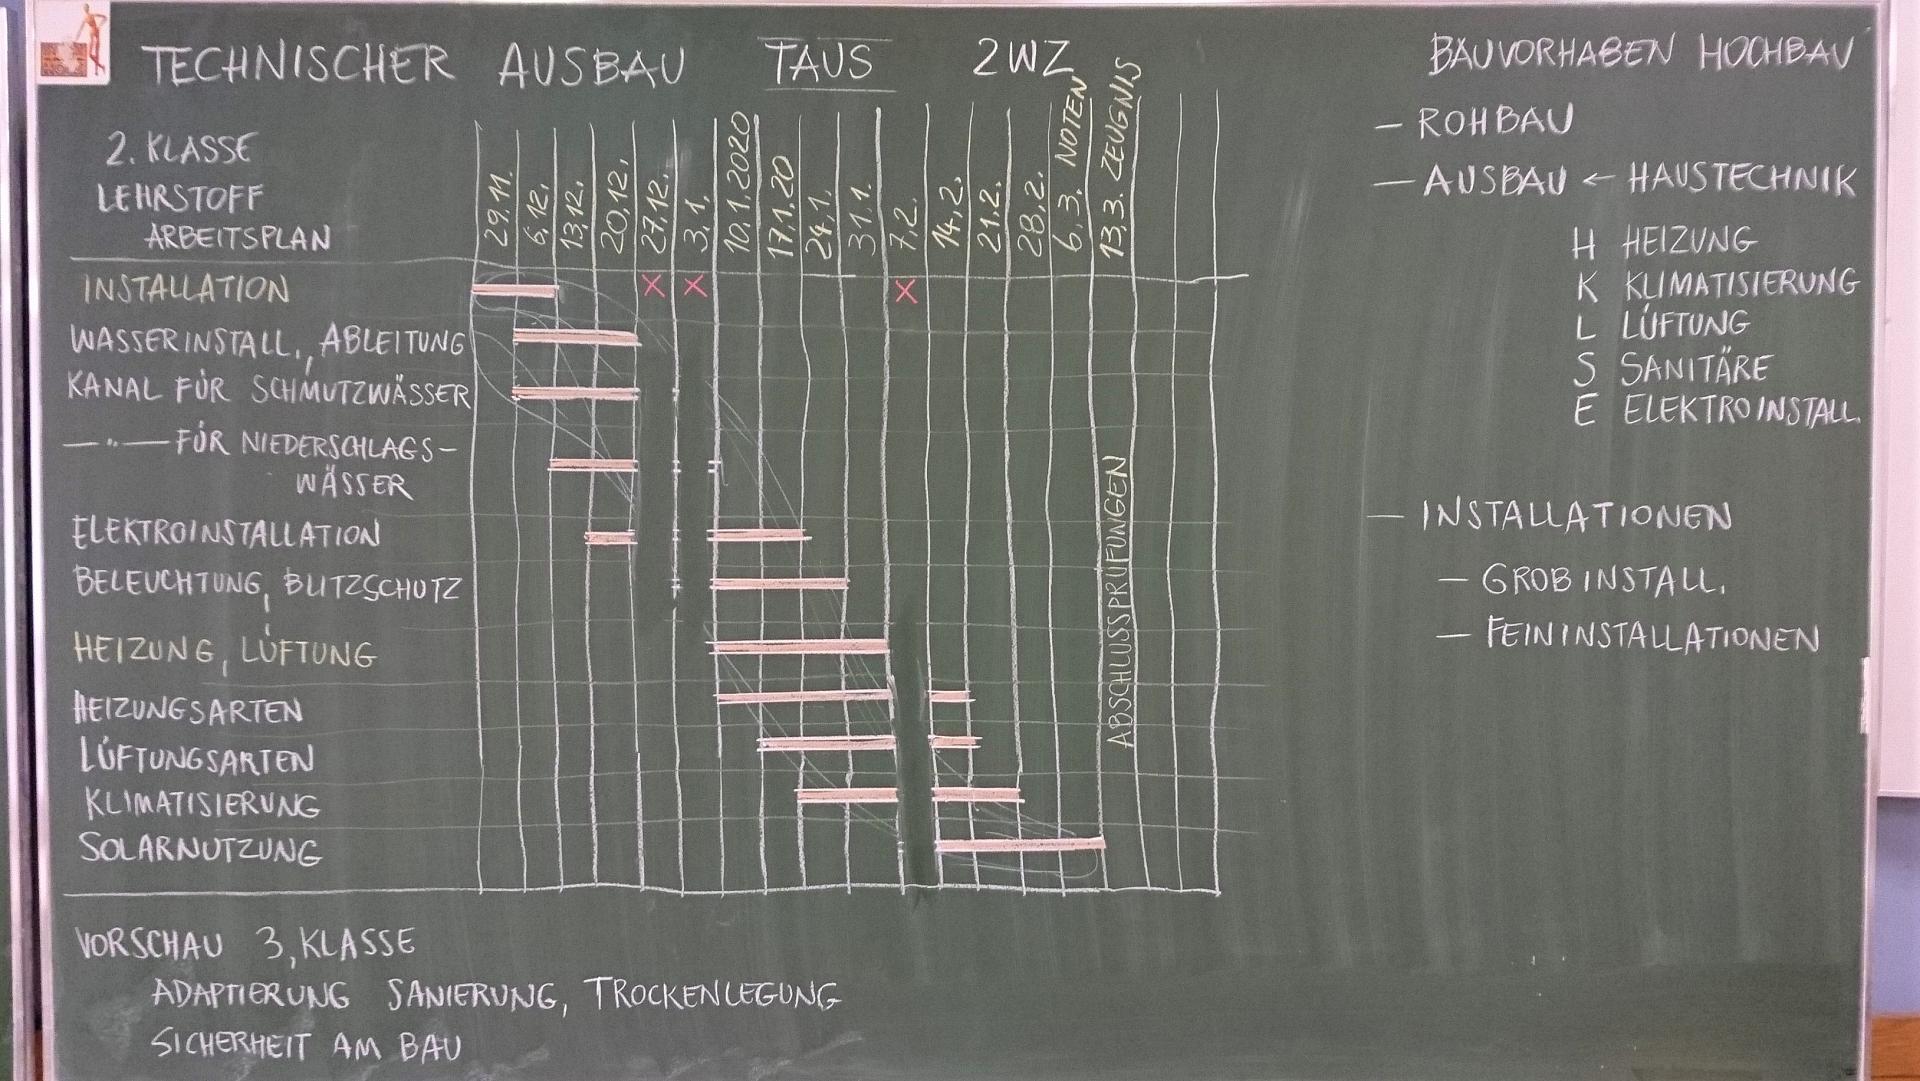 TECHNISCHER AUSBAU TAUS 2WZ
2. KLASSE
LEHRSTOFF
ARBEITSPLAN
29.11.
6.12.
13.12.
20.12.
27.12.
3.1.
10.1.2020
17.1.20
24.1.
31.1.
7.2.
14.2.
21.2.
28.2.
6.3. NOTEN
13.3. ZEUGNIS
INSTALLATION
WASSERINSTALL., ABLEITUNG
KANAL FÜR SCHMUTZWÄSSER
—"— FÜR NIEDERSCHLAGS-
WÄSSER
ELEKTROINSTALLATION
BELEUCHTUNG, BLITZSCHUTZ
HEIZUNG, LÜFTUNG
HEIZUNGSARTEN
LÜFTUNGSARTEN
KLIMATISIERUNG
SOLARNUTZUNG
ABSCHLUSSPRÜFUNGEN
VORSCHAU 3. KLASSE
ADAPTIERUNG SANIERUNG, TROCKENLEGUNG
SICHERHEIT AM BAU
BAUVORHABEN HOCHBAU
— ROHBAU
— AUSBAU ← HAUSTECHNIK
H HEIZUNG
K KLIMATISIERUNG
L LÜFTUNG
S SANITÄRE
E ELEKTROINSTALL.
— INSTALLATIONEN
— GROBINSTALL.
— FEININSTALLATIONEN